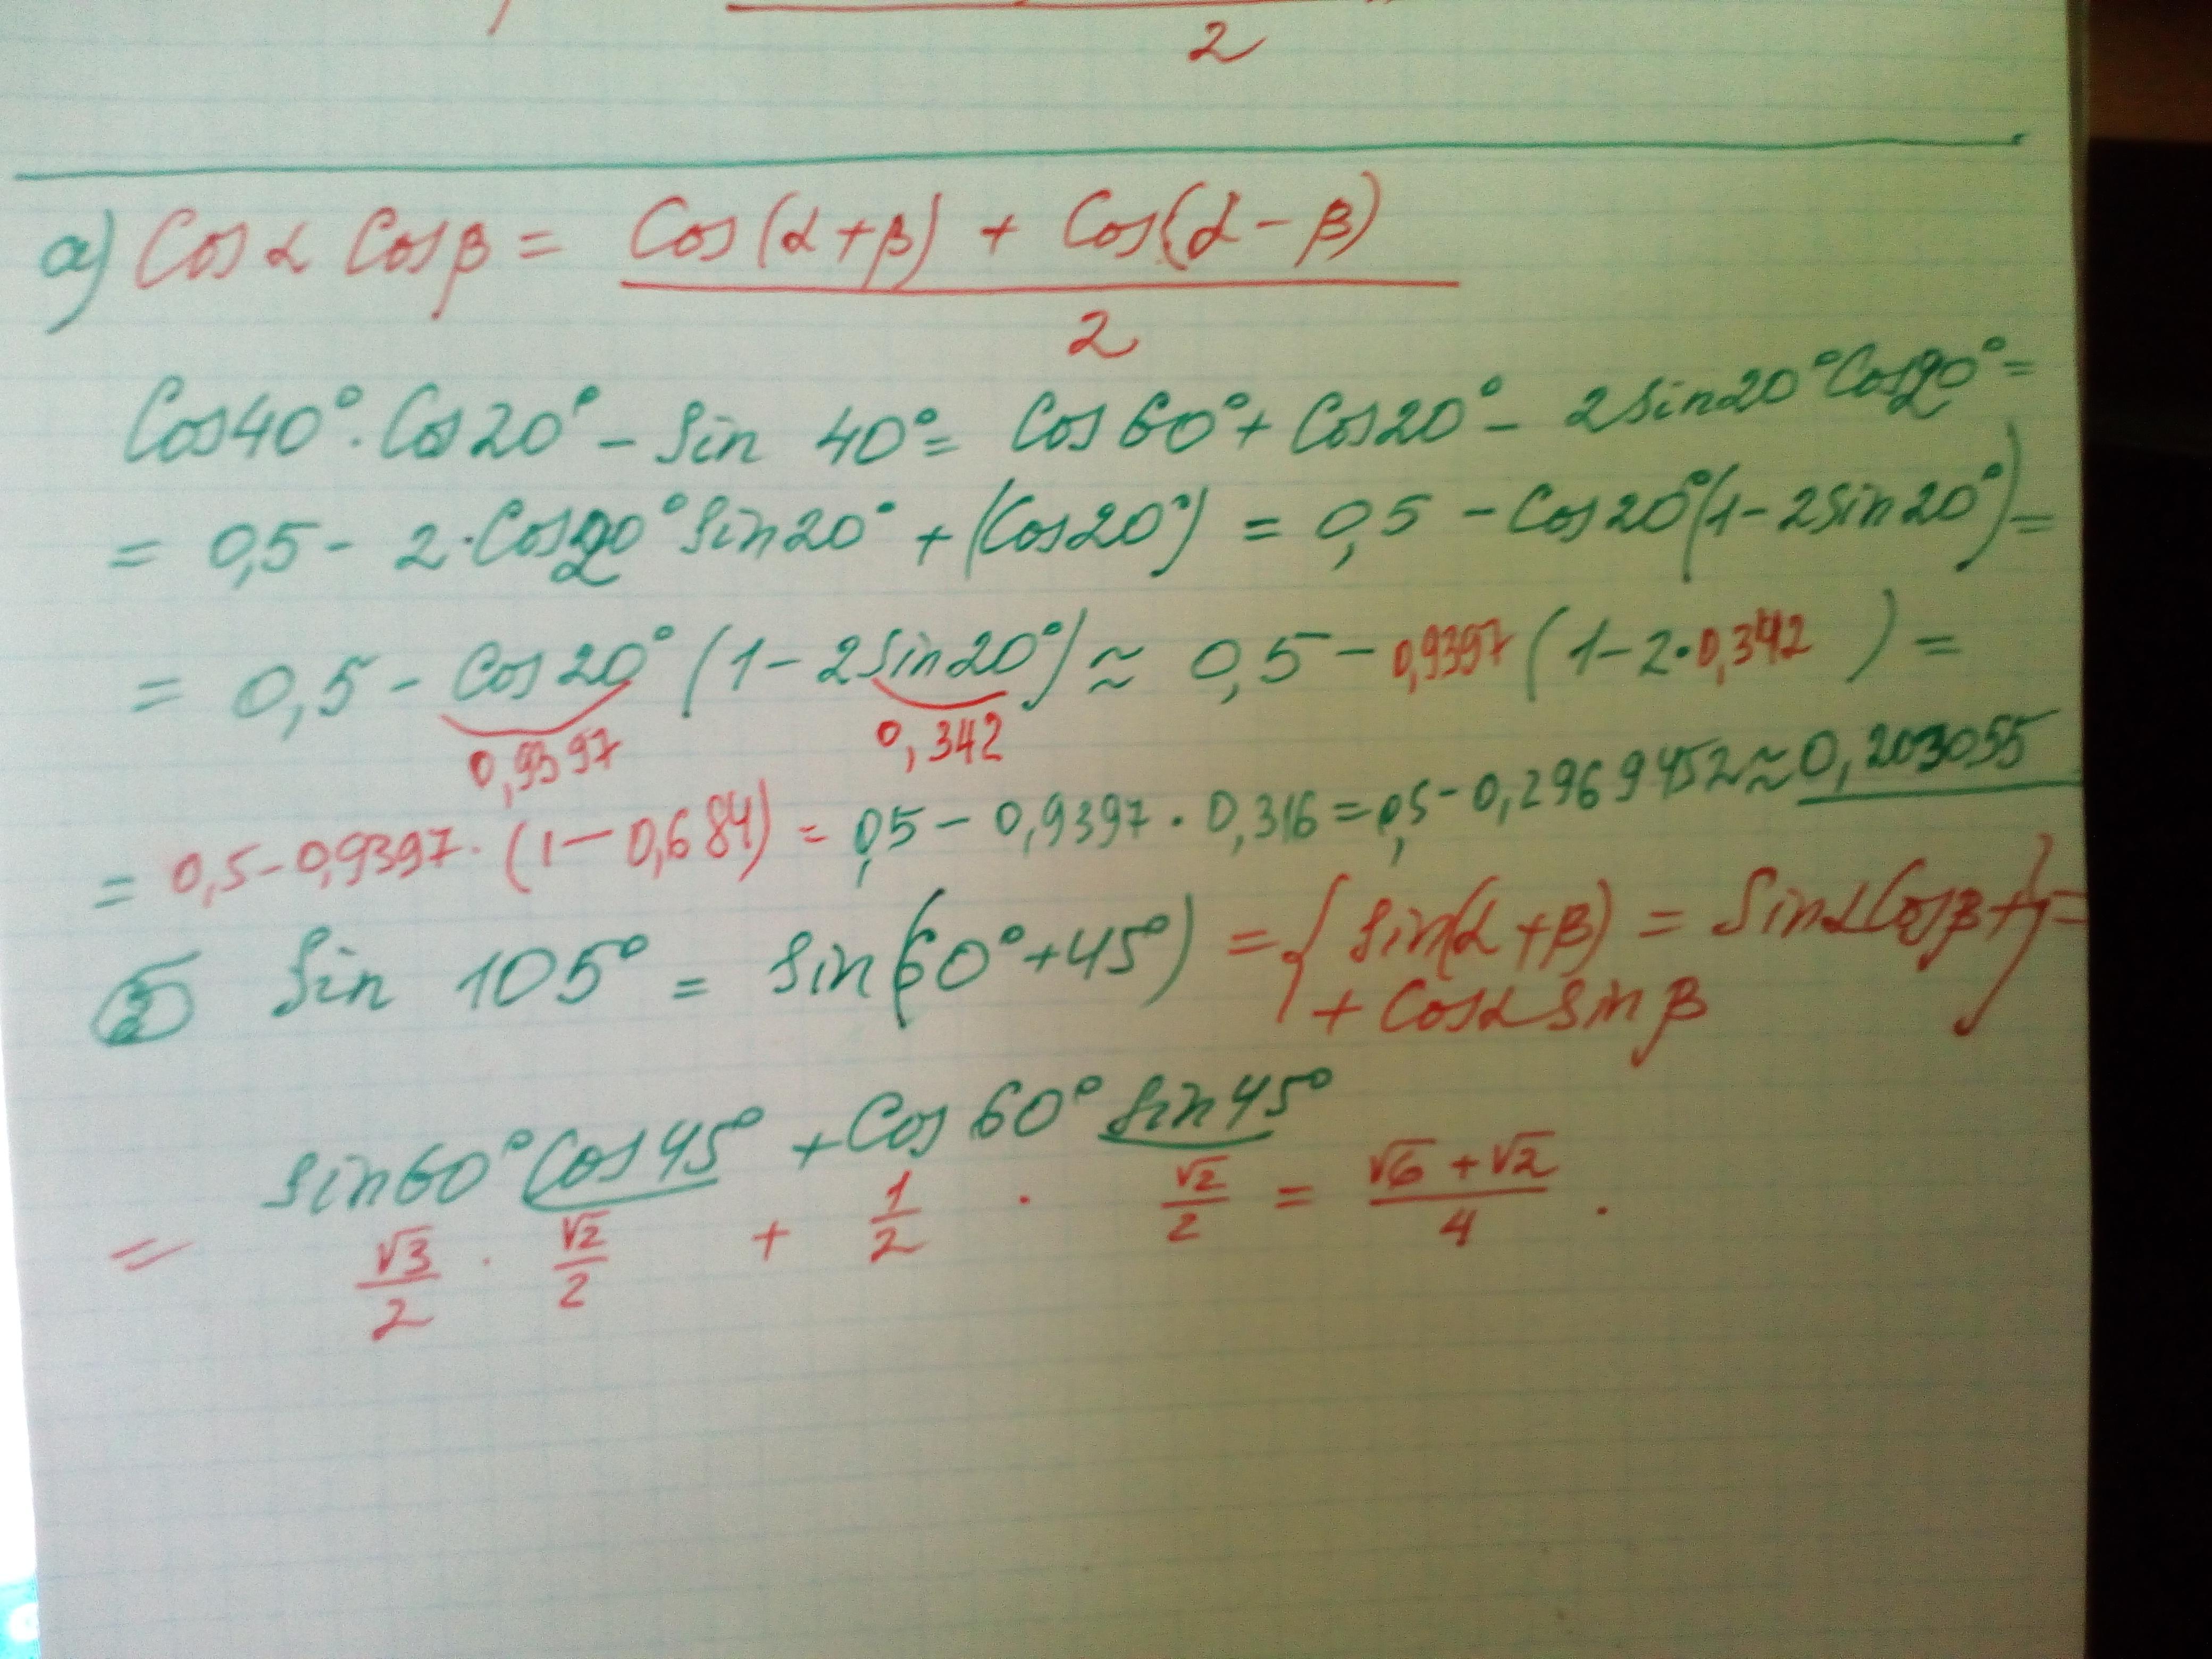 2
a) Cos α Cos β = Cos(α+β) + Cos(α-β)
2
Cos40°·Cos20° - Sin 40° = Cos60° + Cos20° - 2Sin20°Cos20° =
= 0,5 - 2·Cos20°Sin20° + (Cos20°) = 0,5 - Cos20°(1-2Sin20°) =
= 0,5 - Cos20° (1-2Sin20°) ≈ 0,5 - 0,9397 (1-2·0,342 ) =
0,9397 0,342
= 0,5-0,9397·(1-0,684) = 0,5 - 0,9397·0,316 = 0,5 - 0,2969452 ≈ 0,203055
Sin 105° = Sin(60°+45°) = { Sin(α+β) = Sin α Cos β + } =
+ Cos α Sin β
Sin60°Cos45° + Cos60° Sin45°
= √3/2 · √2/2 + 1/2 · √2/2 = √6+√2/4 .